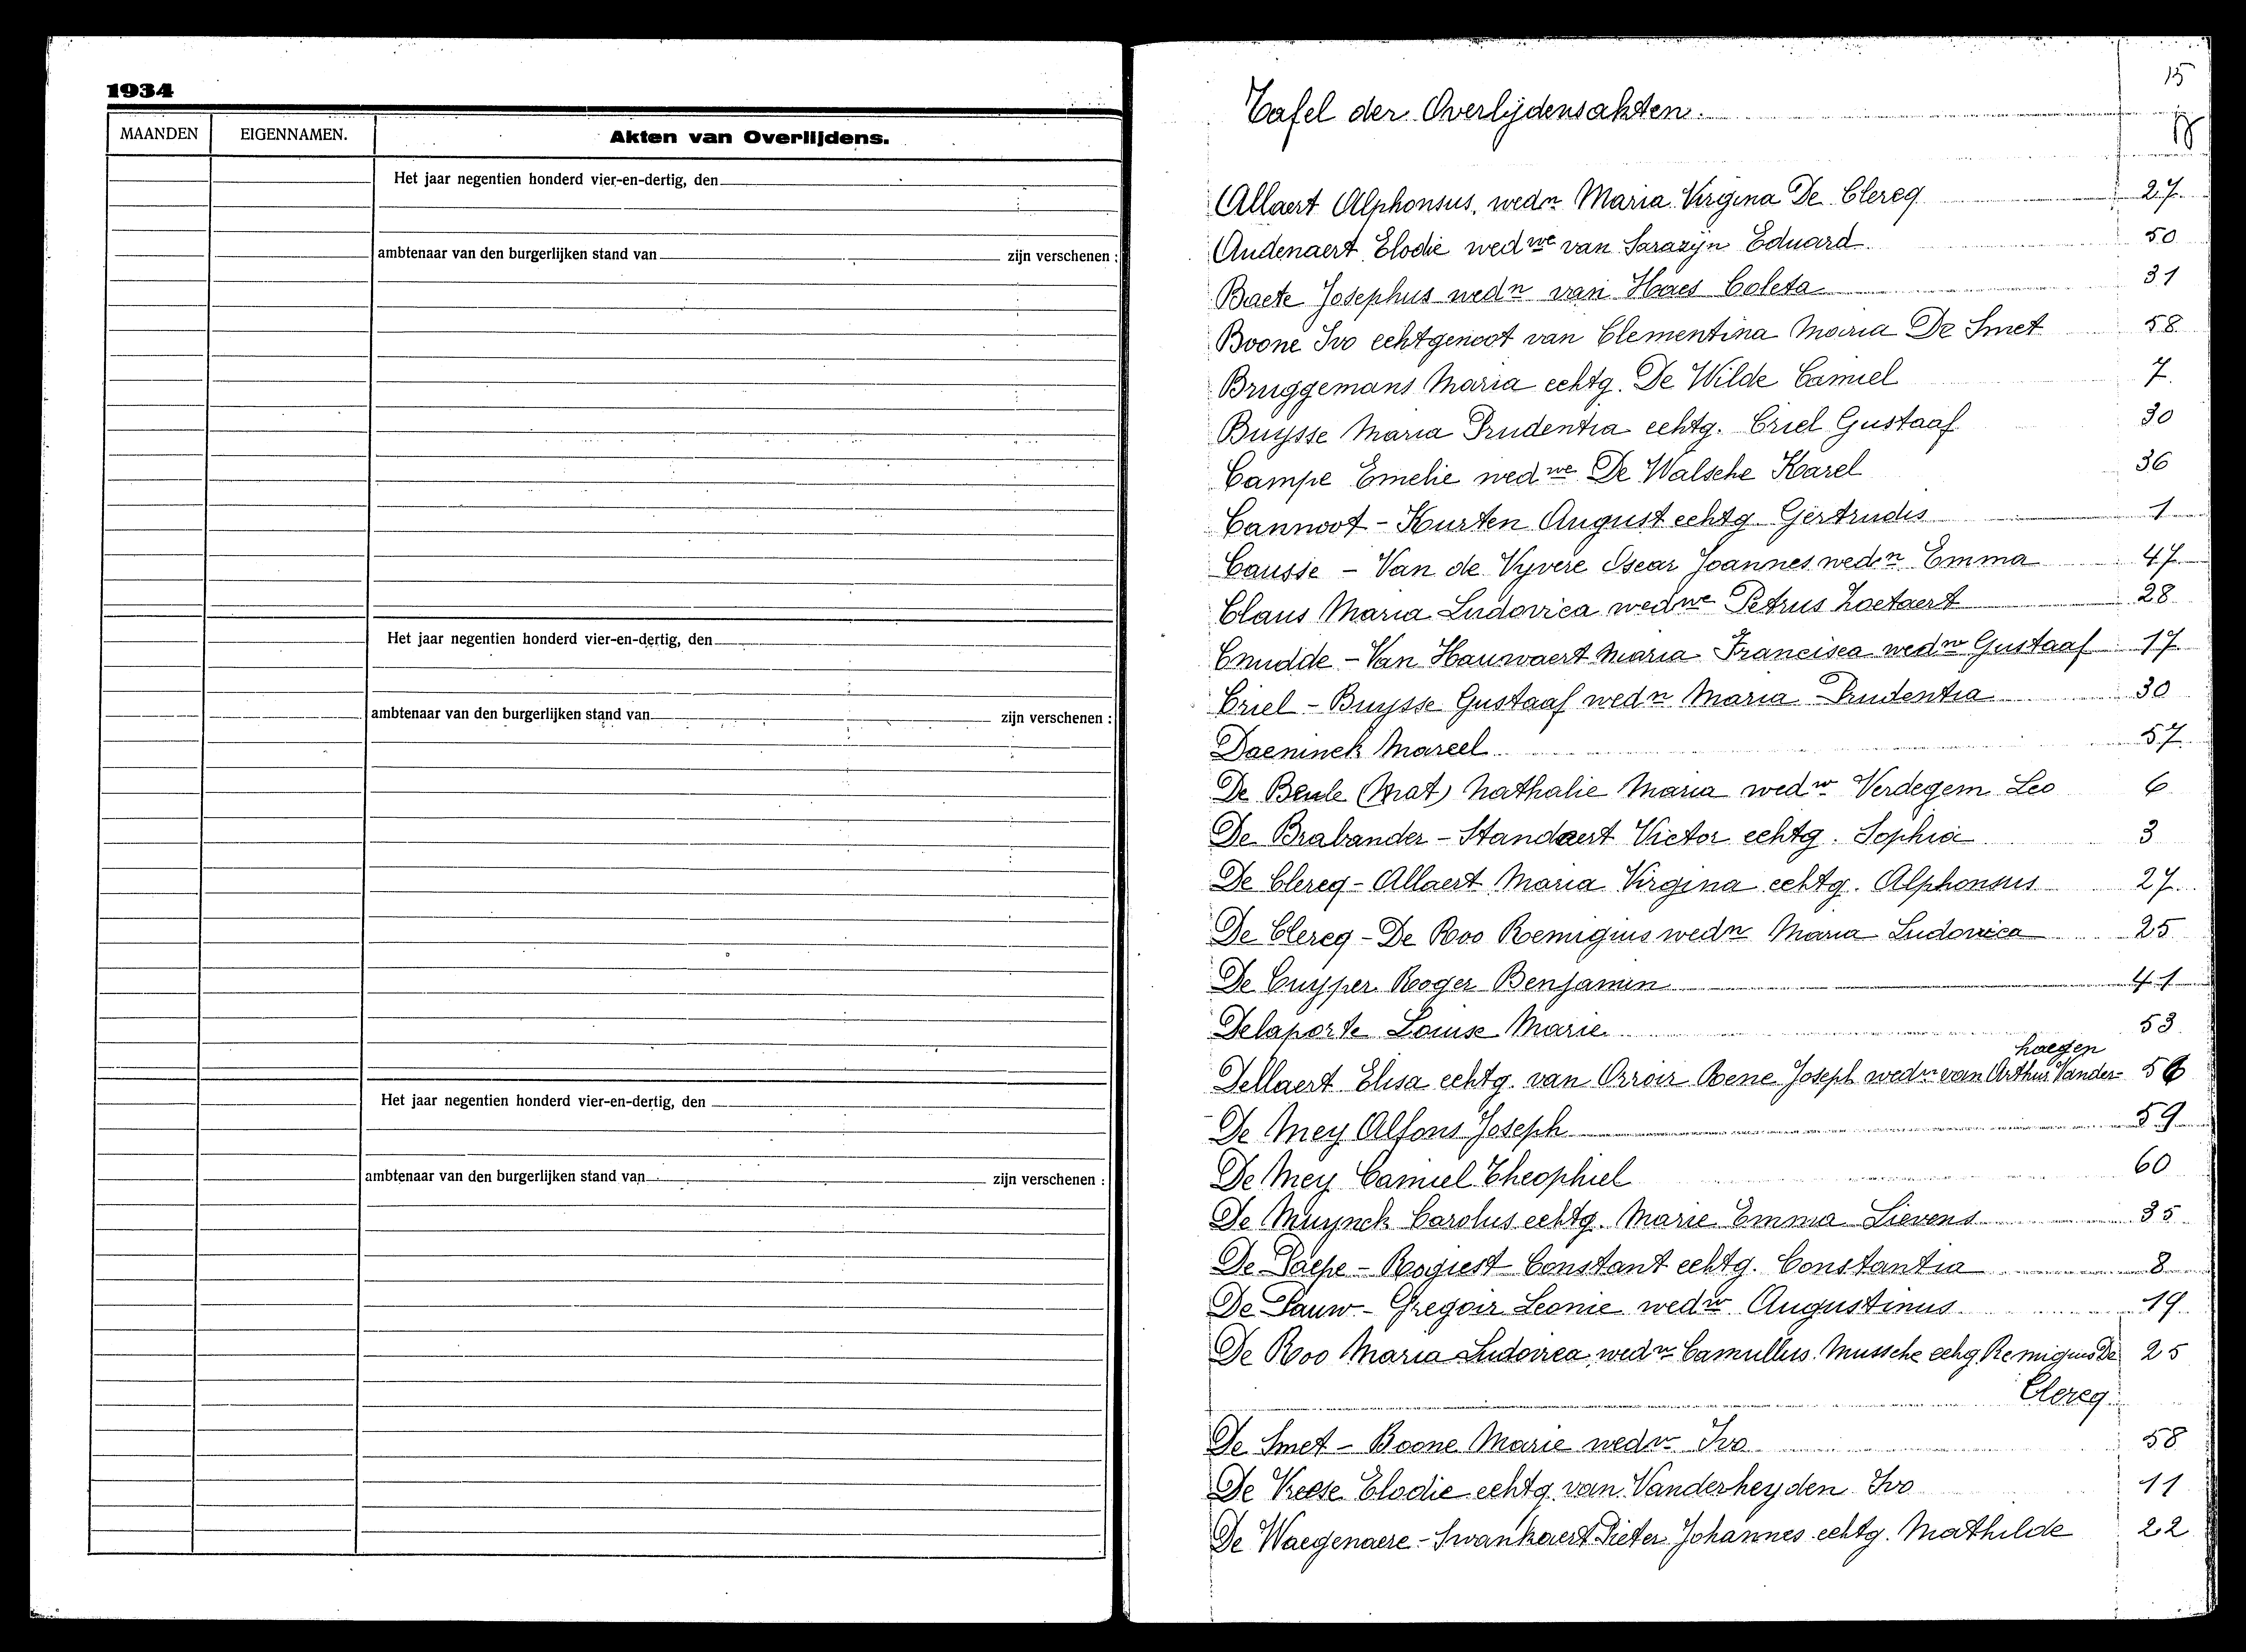 1934
MAANDEN EIGENNAMEN. Akten van Overlijdens.
Het jaar negentien honderd vier-en-dertig, den
ambtenaar van den burgerlijken stand van zijn verschenen :
Het jaar negentien honderd vier-en-dertig, den
ambtenaar van den burgerlijken stand van zijn verschenen :
Het jaar negentien honderd vier-en-dertig, den
ambtenaar van den burgerlijken stand van zijn verschenen :
15
Tafel der Overlijdensakten.
Allaert Alphonsus, wedn Maria Virgina De Clercq 27
Audenaert Elodie wedwe van Sarazijn Eduard 50
Baete Josephus wedn van Haes Coleta 31
Boone Ivo echtgenoot van Clementina Maria De Smet 58
Bruggemans Maria echtg. De Wilde Camiel 7
Buysse Maria Prudentia echtg. Criel Gustaaf 30
Campe Emelie wedwe De Walsche Karel 36
Cannoot - Kurten August echtg Gertrudis 1
Causse - Van de Vyvere Oscar Joannes wedn Emma 47
Claus Maria Ludovica wedwe Petrus Zoetaert 28
Cnudde - Van Hauwaert Maria Francisca wedw Gustaaf 17
Criel - Buysse Gustaaf wedn Maria Prudentia 30
Daeninck Marcel 57
De Beule (Nat) Nathalie Maria wedw Verdegem Leo 6
De Brabander - Standaert Victor echtg. Sophia 3
De Clercq - Allaert Maria Virgina echtg. Alphonsus 27
De Clercq - De Roo Remigius wedn Maria Ludovica 25
De Cuyper Roger Benjamin 41
Delaporte Louise Marie 53
haegen
Dellaert Elisa echtg. van Orroir Rene Joseph wedw van Arthur Vander- 56
De Mey Alfons Joseph 59
De Mey Camiel Theophiel 60
De Muynck Carolus echtg. Marie Emma Lievens 35
De Paepe - Rogiest Constant echtg. Constantia 8
De Pauw - Gregoir Leonie wedw Augustinus 19
De Roo Maria Ludovica wedw Camullus Mussche echg Remigius De 25
Clercq
De Smet - Boone Marie wedw Ivo 58
De Vreese Elodie echtg van Vanderheyden Ivo 11
De Waegenaere - Swankaert Pieter Johannes echtg. Mathilde 22